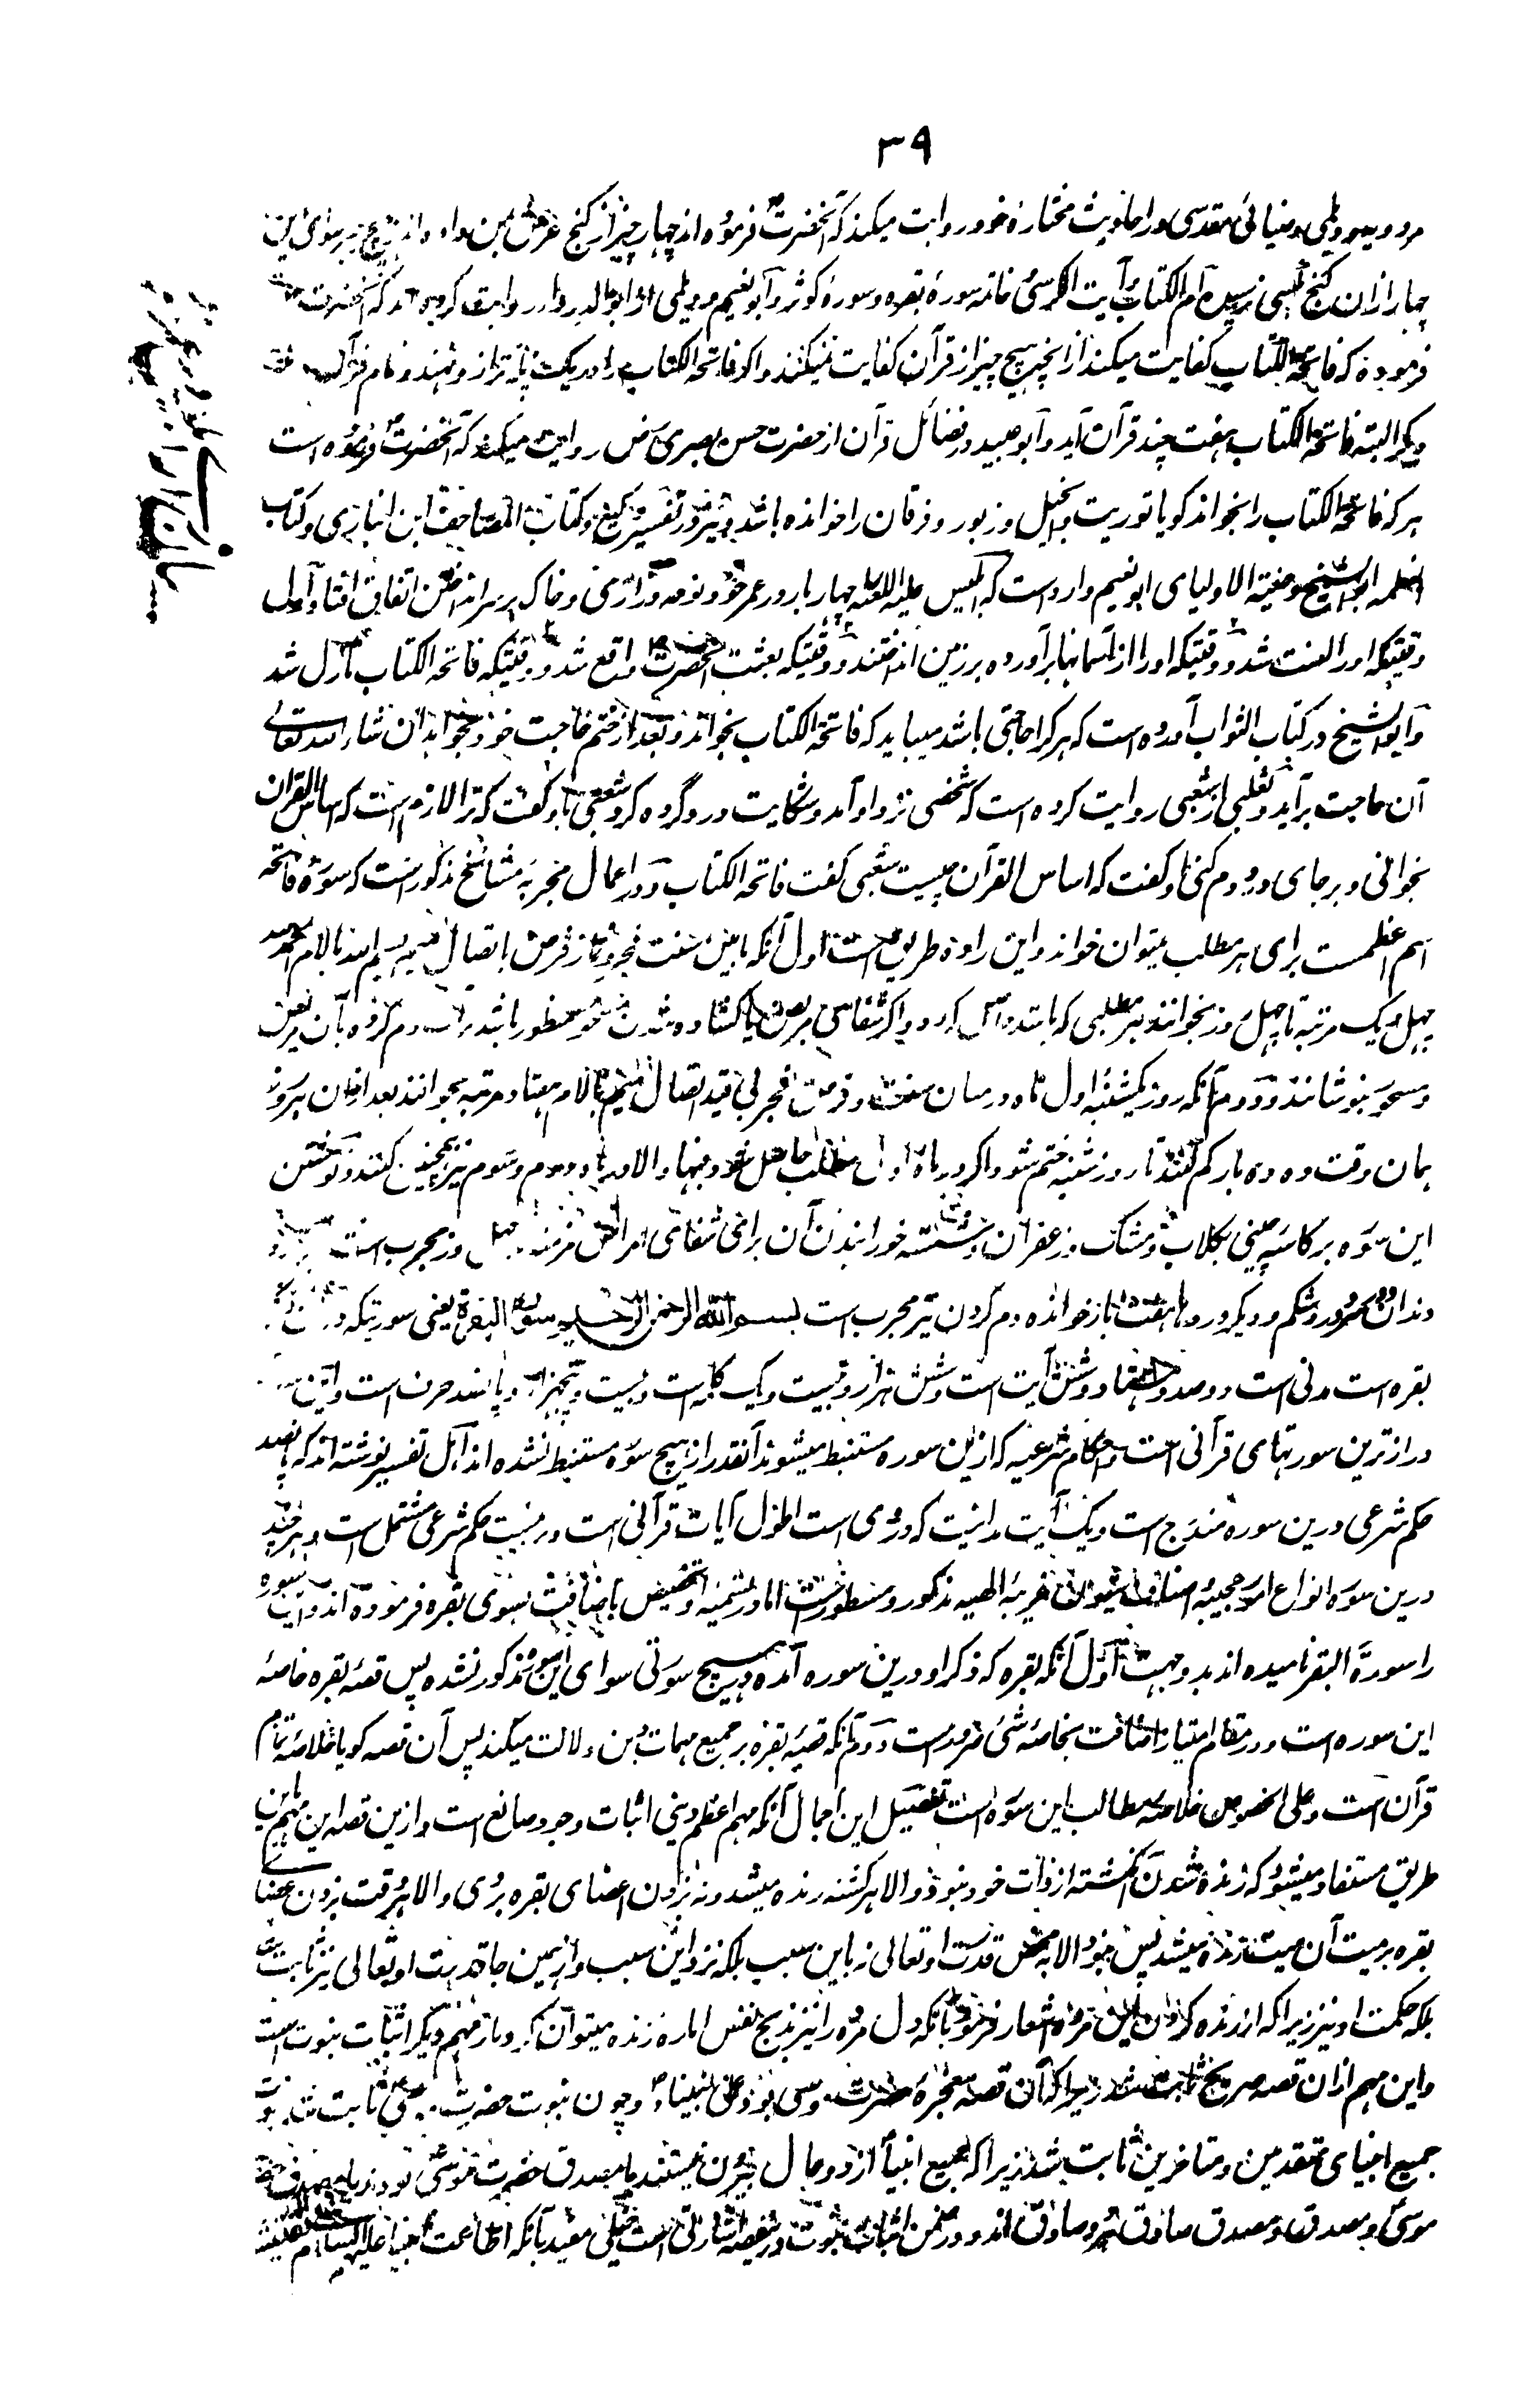 ۳۹
مردویه و دیلمی و ضیائی مقدسی در احادیث مختارۀ خود روایت میکند که آنحضرت فرموده اند چهار چیز از گنج عرش بمن داده اند
چهار ازان گنج کسی نرسیده ام الکتاب و آیت الکرسی خاتمه سورۀ بقره و سورۀ کوثر و آبو نعیم و دیلمی از ابوالدردار روایت کرده اند که آنحضرت
فرموده که فاتحة الکتاب کفایت میکند از انچه هیچ چیز از قرآن کفایت نمیکند و اگر فاتحة الکتاب را در یک پلۀ ترازو نهند و تمام قرآن
دیگر البته فاتحة الکتاب هفت چند قرآن آید و آبو عبید در فضائل قرآن از حضرت حسن بصری رض روایت میکند که آنحضرت فرموده است
هر که فاتحة الکتاب را بخواند گویا توریت و انجیل و زبور و فرقان را خوانده باشد و نیز در تفسیر وکیع و کتاب المصاحف ابن انباری و کتاب
العظمه ابو الشیخ و حلیة الاولیای ابو نعیم وارد است که ابلیس علیه اللعنه چهار بار در عمر خود نوحه و زاری و خاک بر سر انداختن اتفاق افتاد اول
وقتیکه اورا لعنت شد و وقتیکه اورا از آسمانها برآورده بر زمین انداختند و وقتیکه بعثت آنحضرت واقع شد و وقتیکه فاتحة الکتاب نازل شد
و ابو الشیخ در کتاب الثواب آورده است که هر کرا حاجتی باشد میباید که فاتحة الکتاب بخواند و بعد از ختم حاجت خود بخواهد ان شاء الله تعالی
آن حاجت برآید و ثعلبی از شعبی روایت کرده است که شخصی نزد او آمد و شکایت درد گرده کرد شعبی باو گفت که ترا لازم است که اساس القران
بخوانی و بر جای درد دم کنی او گفت که اساس القرآن چیست شعبی گفت فاتحة الکتاب و در اعمال مجربۀ مشائخ مذکور است که سورۀ فاتحه
اسم اعظمست برای هر مطلب میتوان خواند و این را دو طریق است اول آنکه مابین سنت فجر و نماز فرض با اتصال میم بسم الله بالام الحمد
چهل و یک مرتبه تا چهل روز بخوانند هر مطلبی که باشد حاصل گردد و اگر شفای مریض یا کشاده شدن سحر منظور باشد بر آب دم کرده بآن مریض
و مسحور بنوشانند و دوم آنکه روز یکشنبه اول ماه درمیان سنت و فرض فجر بی قید اتصال میم بالام هفتاد مرتبه بخوانند بعد ازان هر روز
همان وقت ده ده بار کم کنند تا روز شنبه ختم شود اگر در ماه اول مطلب حاصل شود فبها والا در ماه دوم و سوم نیز همچنین کنند و نوشتن
این سوره بر کاسۀ چینی بگلاب و مشک و زعفران و شسته خورانیدن آن برای شفای امراض مزمنه چهل روز مجرب است
دندان و درد سر و درد شکم و دیگر دردها هفت بار خوانده دم کردن نیز مجرب است بسم الله الرحمن الرحیم سورة البقرة یعنی سورتیکه در
بقره است مدنی است دو صد و هشتاد و شش آیت است و شش هزار و بیست و یک کلمه است و بیست و پنجهزار و پانصد حرف است و این
درازترین سورتهای قرآنی است و احکام شرعیه که ازین سوره مستنبط میشوند آنقدر از هیچ سوره مستنبط نشده اند اهل تفسیر نوشته اند که پانصد
حکم شرعی درین سوره مندرج است و یک آیت مداینت که دروی است اطول آیات قرآنی است و بر بیست حکم شرعی مشتمل است و هر چند
درین سوره انواع امور عجیبه و اصناف شیون غریبۀ الهیه مذکور و مسطور است اما در تسمیه و تخصیص باضافت بسوی بقره فرموده اند و این سوره
را سورة البقر نامیده اند بدو جهت اول آنکه بقره که ذکر او درین سوره آمده در هیچ سورتی سوای این سوره مذکور نشده پس قصۀ بقره خاصۀ
این سوره است و در مقام امتیاز اضافت بخاصۀ شئ ضرور است و دوم آنکه قصۀ بقره بر جمیع مهمات دین دلالت میکند پس آن قصه گویا خلاصۀ تمام
قرآن است و علی الخصوص خلاصۀ مطالب این سوره است تفصیل این اجمال آنکه مهم اعظم دینی اثبات وجود صانع است و ازین قصه این مهم باین
طریق مستفاد میشود که زنده شدن آن کشته از ذات خود نبود والا هر کشته زنده میشد و نه بزدن اعضای بقره بروی والا هر وقت بزدن اعضای
بقره بر میت آن میت زنده میشد پس نبود الا به محض قدرت او تعالی نه باین سبب بلکه نزد این سبب و از همین جا قدرت او تعالی نیز ثابت
بلکه حکمت او نیز زیرا که از زنده کردن این مرده اشعار فرمود بآنکه دل مرده را نیز بذبح نفس اماره زنده میتوان کرد و باز مهم دیگر اثبات نبوت است
و این مهم ازان قصه صریح ثابت شد زیرا که آن قصه معجزۀ حضرت موسی بود علی نبینا و چون نبوت حضرت موسی ثابت شد نبوت
جمیع انبیای متقدمین و متاخرین ثابت شد زیرا که جمیع انبیا از دو حال بیرون نیستند یا مصدق حضرت موسی بودند یا مصدق حضرت
موسی و مصدق و مصدق صادق هر دو صادق اند و در ضمن اثبات نبوت درینقصه اشارتی است خیلی مفید بآنکه اطاعت انبیا علیهم السلام